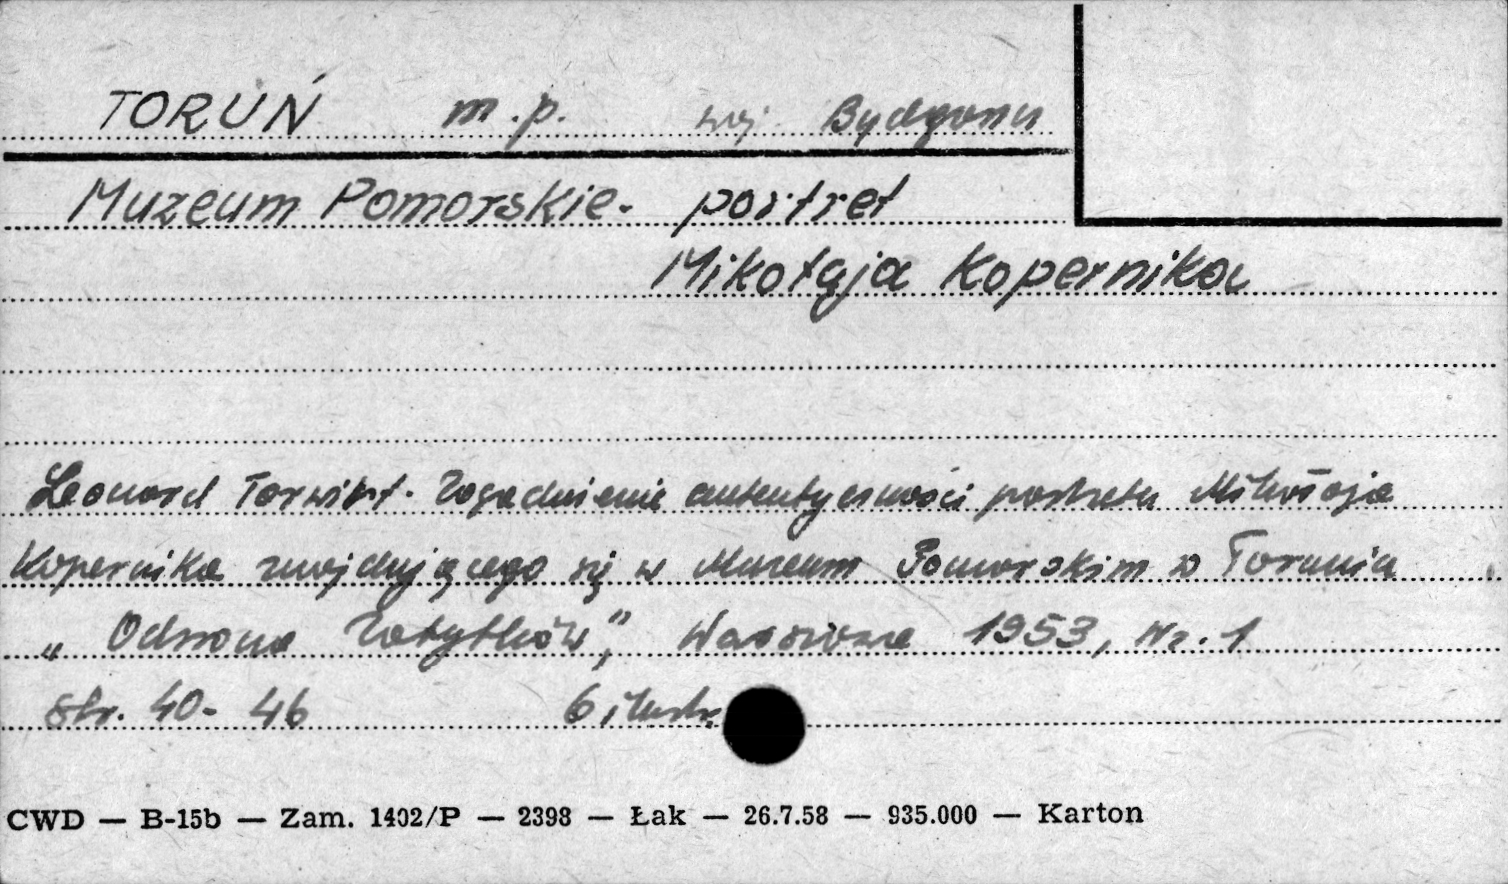 TORUŃ m.p. woj. Bydgoszcz
Muzeum Pomorskie - portret
Mikołaja Kopernika
Leonard Torwirt. Zagadnienie autentyczności portretu Mikołaja
Kopernika znajdującego się w Muzeum Pomorskim w Toruniu
„Ochrona Zabytków”, Warszawa 1953, Nr. 1
str. 40-46 6 ilustr.
CWD — B-15b — Zam. 1402/P — 2398 — Łak — 26.7.58 — 935.000 — Karton